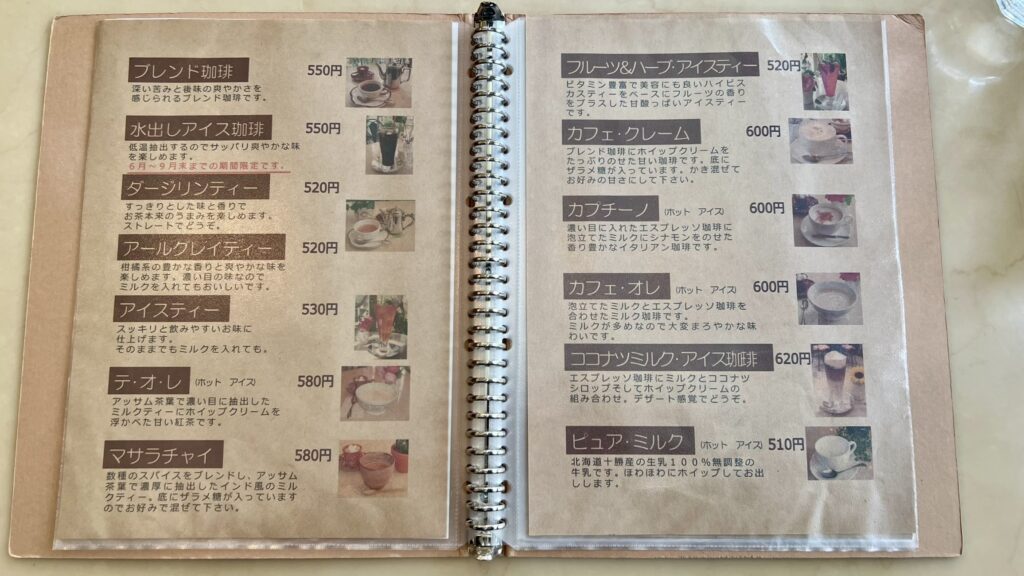 ブレンド珈琲 550円
深い苦みと後味の爽やかさを
感じられるブレンド珈琲です。
水出しアイス珈琲 550円
低温抽出するのでサッパリ爽やかな味
を楽しめます。
6月～9月末までの期間限定です。
ダージリンティー 520円
すっきりとした味と香りで
お茶本来のうまみを楽しめます。
ストレートでどうぞ。
アールグレイティー 520円
柑橘系の豊かな香りと爽やかな味を
楽しめます。濃い目の味なので
ミルクを入れてもおいしいです。
アイスティー 530円
スッキリと飲みやすいお味に
仕上げます。
そのままでもミルクを入れても。
テ・オ・レ (ホット アイス) 580円
アッサム茶葉で濃い目に抽出した
ミルクティーにホイップクリームを
浮かべた甘い紅茶です。
マサラチャイ 580円
数種のスパイスをブレンドし、アッサム
茶葉で濃厚に抽出したインド風のミル
クティー。底にザラメ糖が入っています
のでお好みで混ぜて下さい。
フルーツ&ハーブ・アイスティー 520円
ビタミン豊富で美容にも良いハイビス
カスティーをベースにフルーツの香り
をプラスした甘酸っぱいアイスティー
です。
カフェ・クレーム 600円
ブレンド珈琲にホイップクリームを
たっぷりのせた甘い珈琲です。底に
ザラメ糖が入っています。かき混ぜて
お好みの甘さにして下さい。
カプチーノ (ホット アイス) 600円
濃い目に入れたエスプレッソ珈琲に
泡立てたミルクにシナモンをのせた
香り豊かなイタリアン珈琲です。
カフェ・オレ (ホット アイス) 600円
泡立てたミルクとエスプレッソ珈琲を
合わせたミルク珈琲です。
ミルクが多めなので大変まろやかな味
わいです。
ココナツミルク・アイス珈琲 620円
エスプレッソ珈琲にミルクとココナツ
シロップそしてホイップクリームの
組み合わせ。デザート感覚でどうぞ。
ピュア・ミルク (ホット アイス) 510円
北海道十勝産の生乳100%無調整の
牛乳です。ほわほわにホイップしてお出
しします。